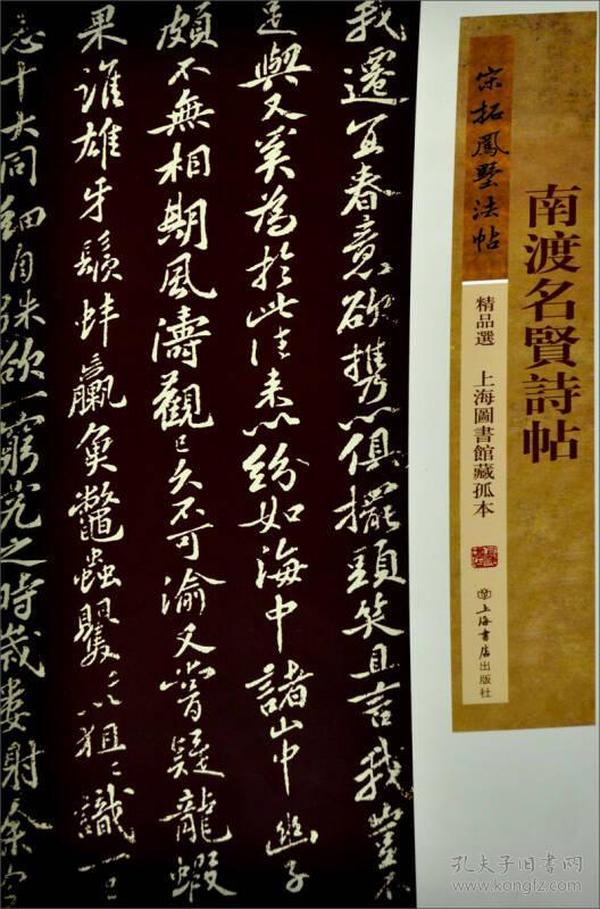 南渡名賢詩帖
宋拓鳳墅法帖
精品選 上海圖書館藏孤本
上海書店出版社
我遷宜春意欲携以俱擺頭笑且言我豈不
足歟又奚為於此往來以紛如海中諸山中幽子
頗不無相期風濤觀已久不可渝又嘗疑龍蝦
果誰雄牙鬚蚌蠃魚鼈蟲瞿〻以狙〻識一已
忘十大同細自殊欲一窮究之時歲婁射余
孔夫子旧书网
www.kongfz.com